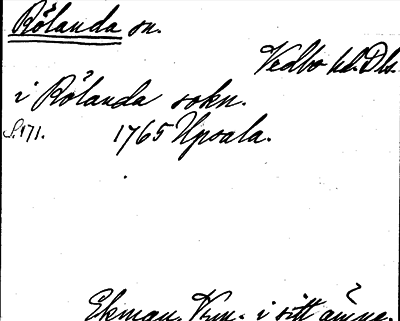 Rölanda sn.
Vedbo hd. Dls.
i Rölanda sokn.
S. 171. 1765 Upsala.
Ekman, Vern. i sitt ämne.